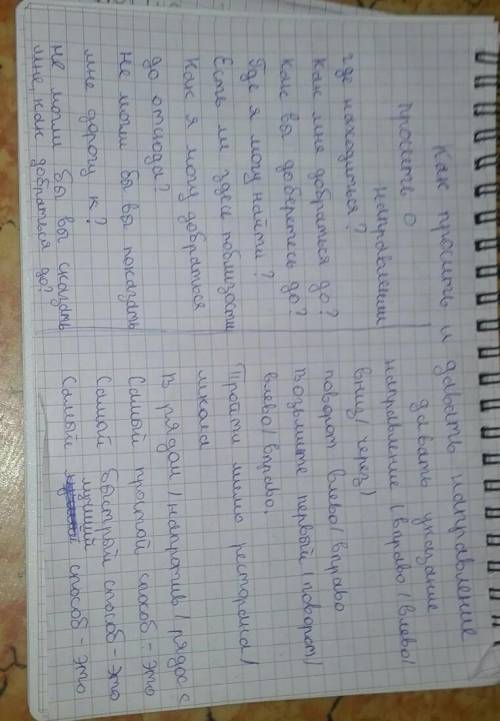 Как просить и давать направление
просить о
направлении
где находиться?
Как мне добраться до?
как вы доберетесь до?
Где я могу найти?
Есть ли здесь поблизости
Как я могу добраться
до отсюда?
не могли бы вы показать
мне дорогу к?
не могли бы вы сказать
мне, как добраться до?
давать указание
направление (вправо/влево/
вниз/через)
поворот влево/вправо
Возьмите первый (поворот)
влево/вправо.
Пройти мимо ресторана/
школа
В рядом/напротив/рядос с
Самый простой способ - это
Самой быстрой способ - это
лучший
Самый способ - это